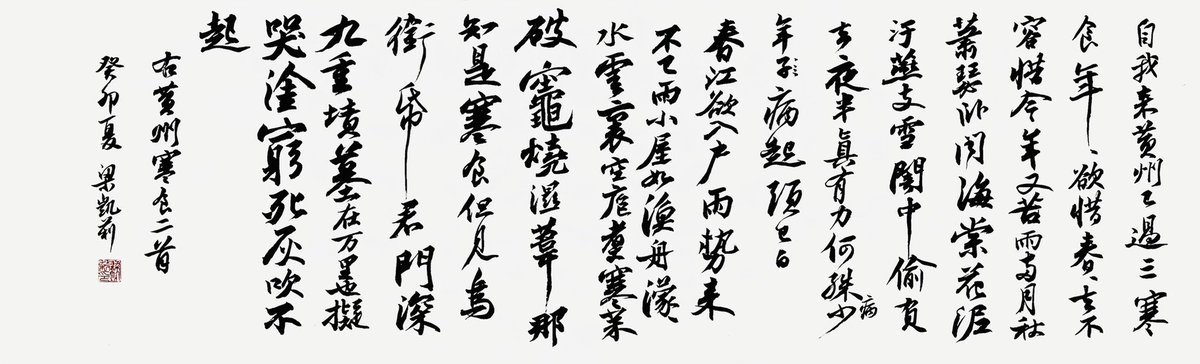 自我来黄州已過三寒
食年〻欲惜春〻去不
容惜今年又苦雨兩月秋
蕭瑟卧聞海棠花泥
汙燕支雪闇中偷負
去夜半真有力何殊少病
年子病起頭已白
春江欲入户雨勢来
不已雨小屋如漁舟濛〻
水雲裏空庖煮寒菜
破竈燒濕葦那
知是寒食但見烏
銜帋君門深
九重墳墓在万里也擬
哭塗窮死灰吹不
起
右黄州寒食二首
癸卯夏 梁凱莉